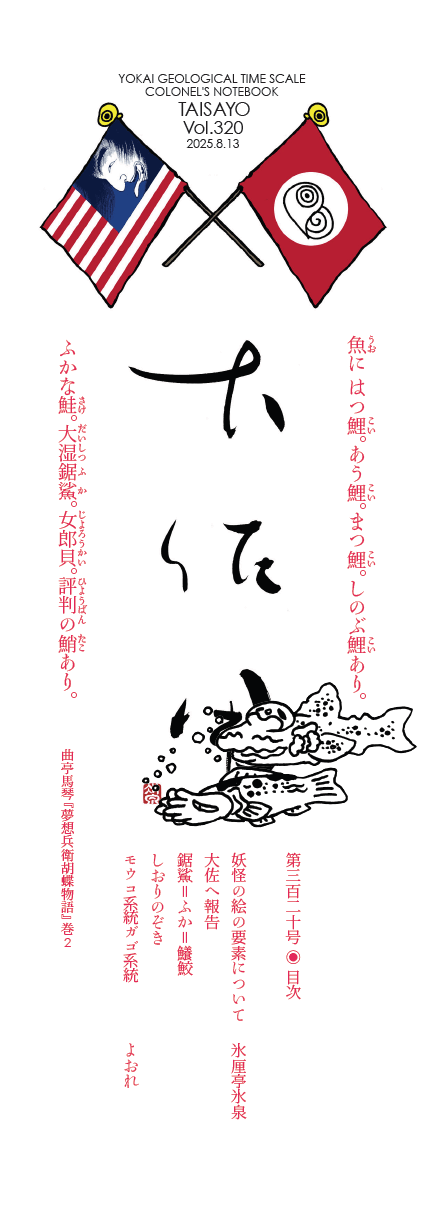 YOKAI GEOLOGICAL TIME SCALE
COLONEL'S NOTEBOOK
TAISAYO
Vol.320
2025.8.13
魚にはつ鯉。あう鯉。まつ鯉。しのぶ鯉あり。
大佐
ふかな鮭。大湿鋸鯊。女郎貝。評判の鮹あり。
曲亭馬琴『夢想兵衛胡蝶物語』巻2
第三百二十号 ◉ 目次
妖怪の絵の要素について 氷厘亭氷泉
大佐へ報告
鋸鯊=ふか=鱶鮫
しおりのぞき
モウコ系統ガゴ系統 よおれ